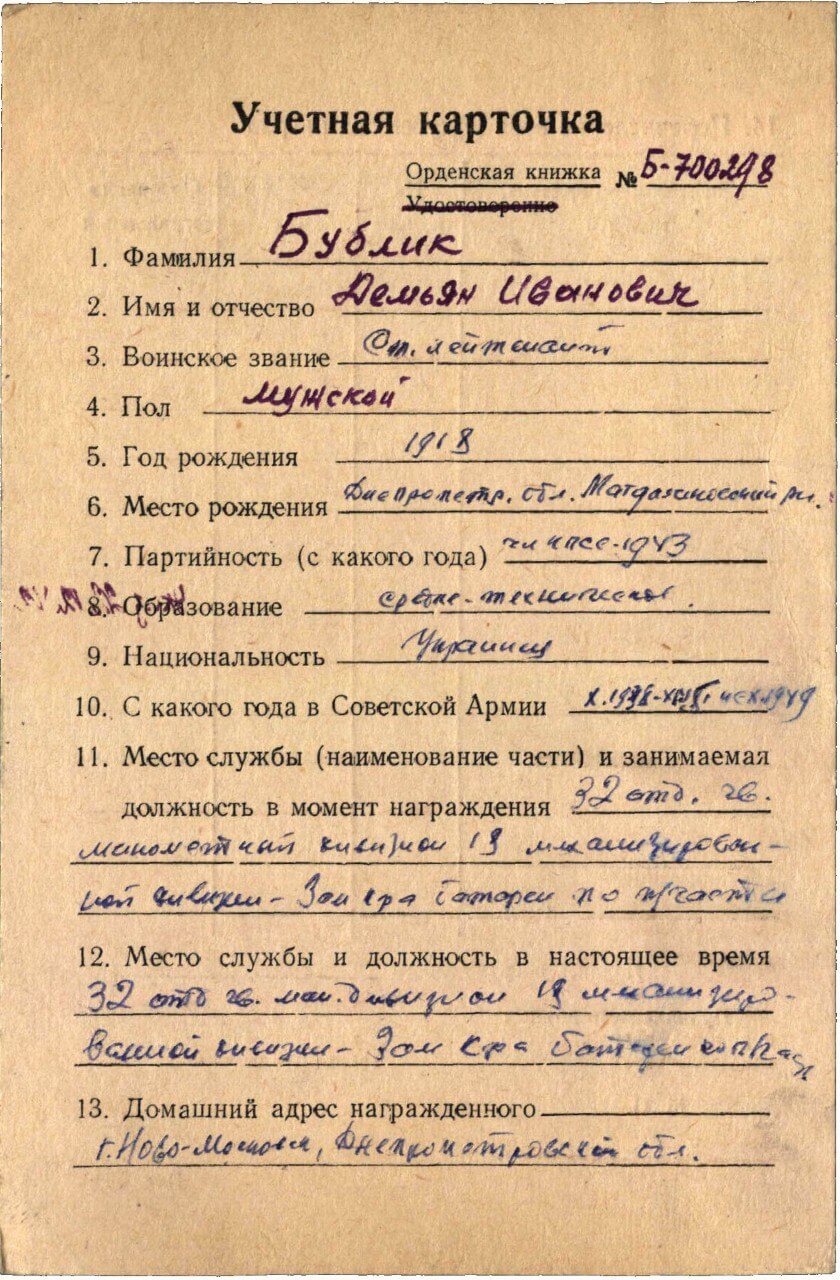 Учетная карточка
Орденская книжка № Б-700298
Удостоверение
1. Фамилия Бублик
2. Имя и отчество Демьян Иванович
3. Воинское звание Ст. лейтенант
4. Пол мужской
5. Год рождения 1918
6. Место рождения Днепропетр. обл.
7. Партийность (с какого года) чл КПСС-1943
8. Образование средне-техническое
9. Национальность Украинец
10. С какого года в Советской Армии
11. Место службы (наименование части) и занимаемая
должность в момент награждения 32 отд. гв.
минометный дивизион 19 механизирован-
ной дивизии - Зам к-ра батареи по
12. Место службы и должность в настоящее время
32 отд гв. мин. дивизион 19 механизиро-
ванной дивизии - Зам к-ра батареи
13. Домашний адрес награжденного
г. Ново-Московск, Днепропетровской обл.